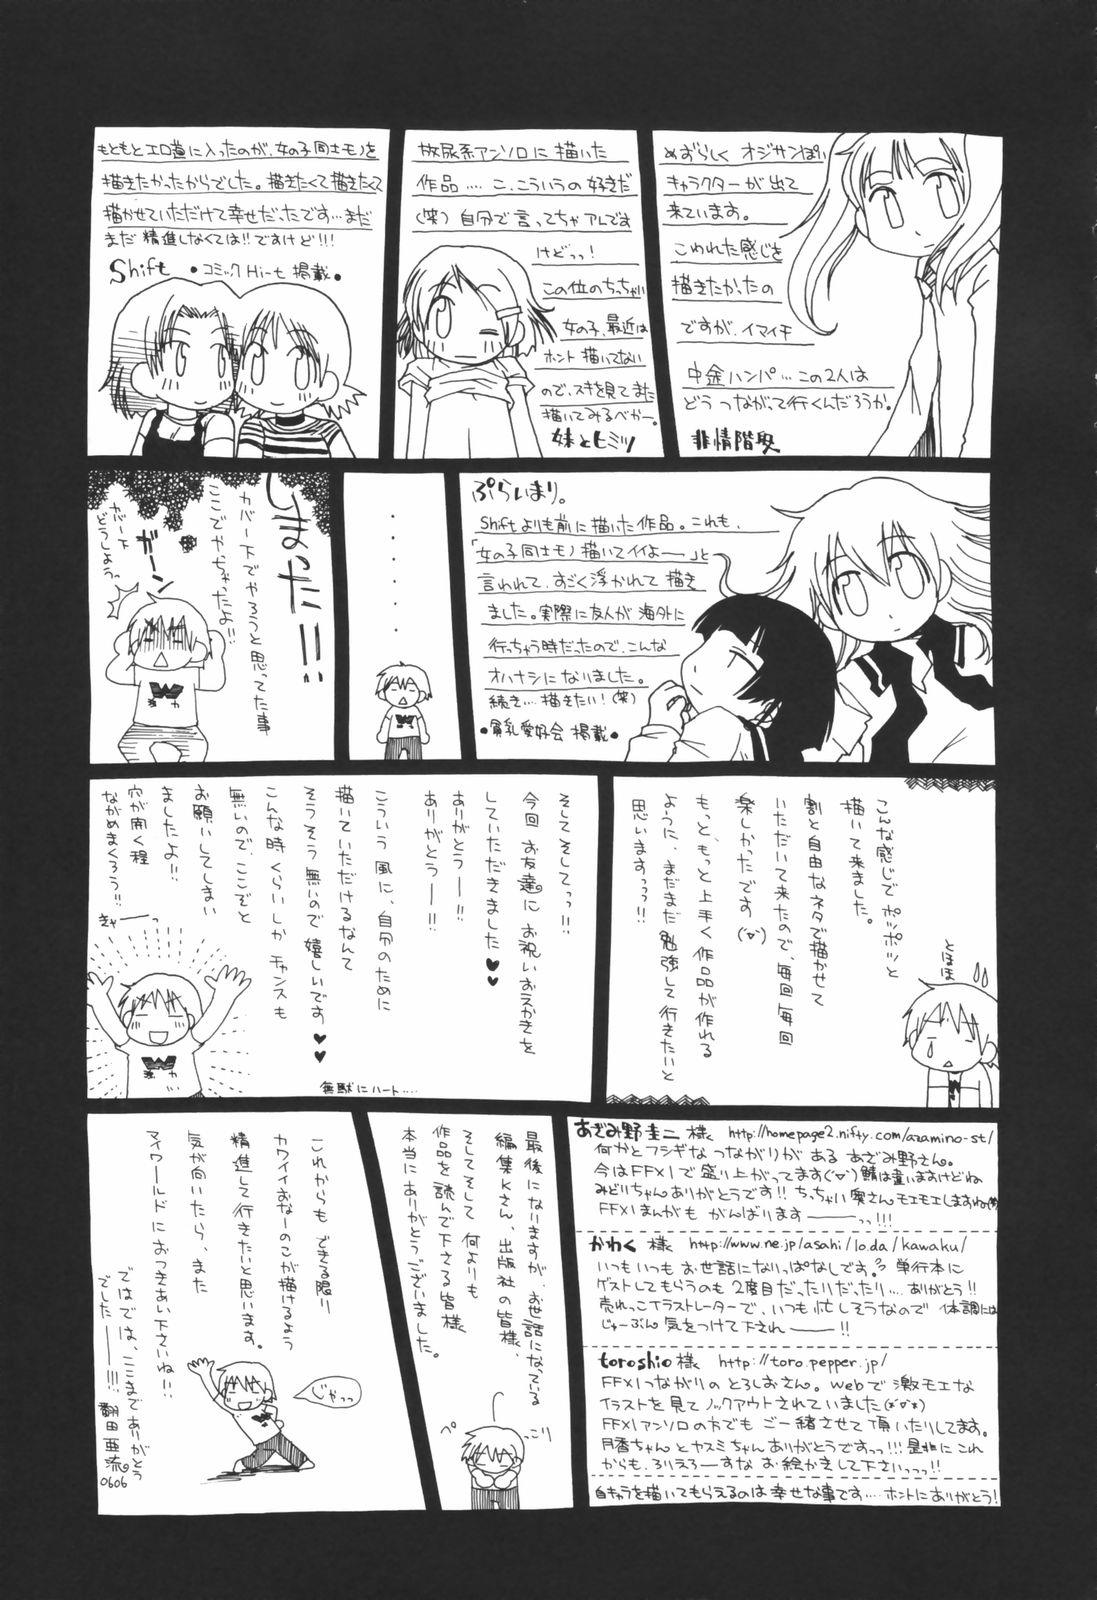 めずらしく オジサンぽい
キャラクターが出て
来ています。
こわれた感じを
描きたかったの
ですが、イマイチ
中途ハンパ…この2人は
どうつながって行くんだろうか。
非情階段
放尿系アンソロに描いた
作品‥‥こ、こういうの好きだ
(笑)自分で言ってちゃアレです
けどっっ!
この位のちっちゃい
女の子、最近は
ホント描いてない
ので、スキを見てまた
描いてみるべかー。
妹とヒミツ
もともとエロ道に入ったのが、女の子同士モノを
描きたかったからでした。描きたくて描きたくて
描かせていただけて幸せだったです…まだ
まだ精進しなくては!!ですけど!!!
Shift ・コミックHi-t掲載・
ぷらいまり。
Shiftよりも前に描いた作品。これも、
「女の子同士モノ描いてイイよー」と
言われて、すごく浮かれて描き
ました。実際に友人が海外に
行っちゃう時だったので、こんな
オハナシになりました。
続き‥‥描きたい!(笑)
・貧乳愛好会 掲載・
・・・・・・
しまった!!!
カバー下でやろうと思ってた事
ここでやっちゃったよ!!
ガーン
カバー下
どうしようっ
こんな感じでポツポツと
描いて来ました。
割と自由なネタで描かせて
いただいて来たので、毎回毎回
楽しかったです(°▽°)
もっと、もっと上手く作品が作れる
ように、まだまだ勉強して行きたいと
思いますっっ!!
とほほ
そしてそしてっっ!!
今回お友達にお祝いおえかきを
していただきました♥♥
ありがとうー!!
ありがとうー!!
こういう風に、自分のために
描いていただけるなんて
そうそう無いので嬉しいです♥♥
こんな時くらいしかチャンスも
無いので、ここぞと
お願いしてしまい
ましたよ!!
穴が開く程
ながめまくろう!!
きゃーっ
無駄にハート‥‥
あざみ野圭二様 http://homepage2.nifty.com/azamino-st/
何かとフシギなつながりがある あざみ野さん。
今はFFXIで盛り上がってます(°▽°)鯖は違いますけどね
みどりちゃんありがとうです!!ちっちゃい奥さんモエモエしますね(笑)
FFXIまんがも がんばります――っっ!!!
かわく様 http://www.ne.jp/asahi/lo.da/kawaku/
いつもいつもお世話になりっぱなしです。単行本に
ゲストしてもらうのも2度目だったりだったり‥‥ありがとう!!
売れっこイラストレーターで、いつも忙しそうなので 体調には
じゅーぶん気をつけて下され――!!
toroshio様 http://toro.pepper.jp/
FFXIつながりのとろしおさん。webで激モエな
イラストを見てノックアウトされていました(*°▽°*)
FFXIアンソロの方でもご一緒させて頂いたりしてます。
月香ちゃんとヤスミちゃんありがとうですっっ!!!是非にこれ
からも、ろりえろーすなお絵かきして下さいっっっ!!
自キャラを描いてもらえるのは幸せな事です‥‥ホントにありがとう!
最後になりますが、お世話になっている
編集Kさん、出版社の皆様、
そしてそして何よりも
作品を読んで下さる皆様
本当にありがとうございました。
ぺっこり
これからもできる限り
カワイイおなーのこが描けるよう
精進して行きたいと思います。
気が向いたら、また
マイワールドにおつきあい下さいね!!
ではでは、ここまでありがとう
でした――!!!
翻田亜流。
0606
じゃっっ